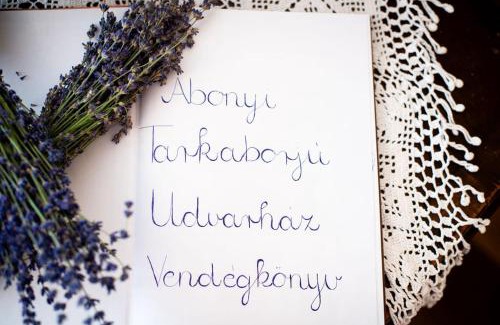 Abonyi
Tarkaborjú
Udvarház
Vendégkönyv